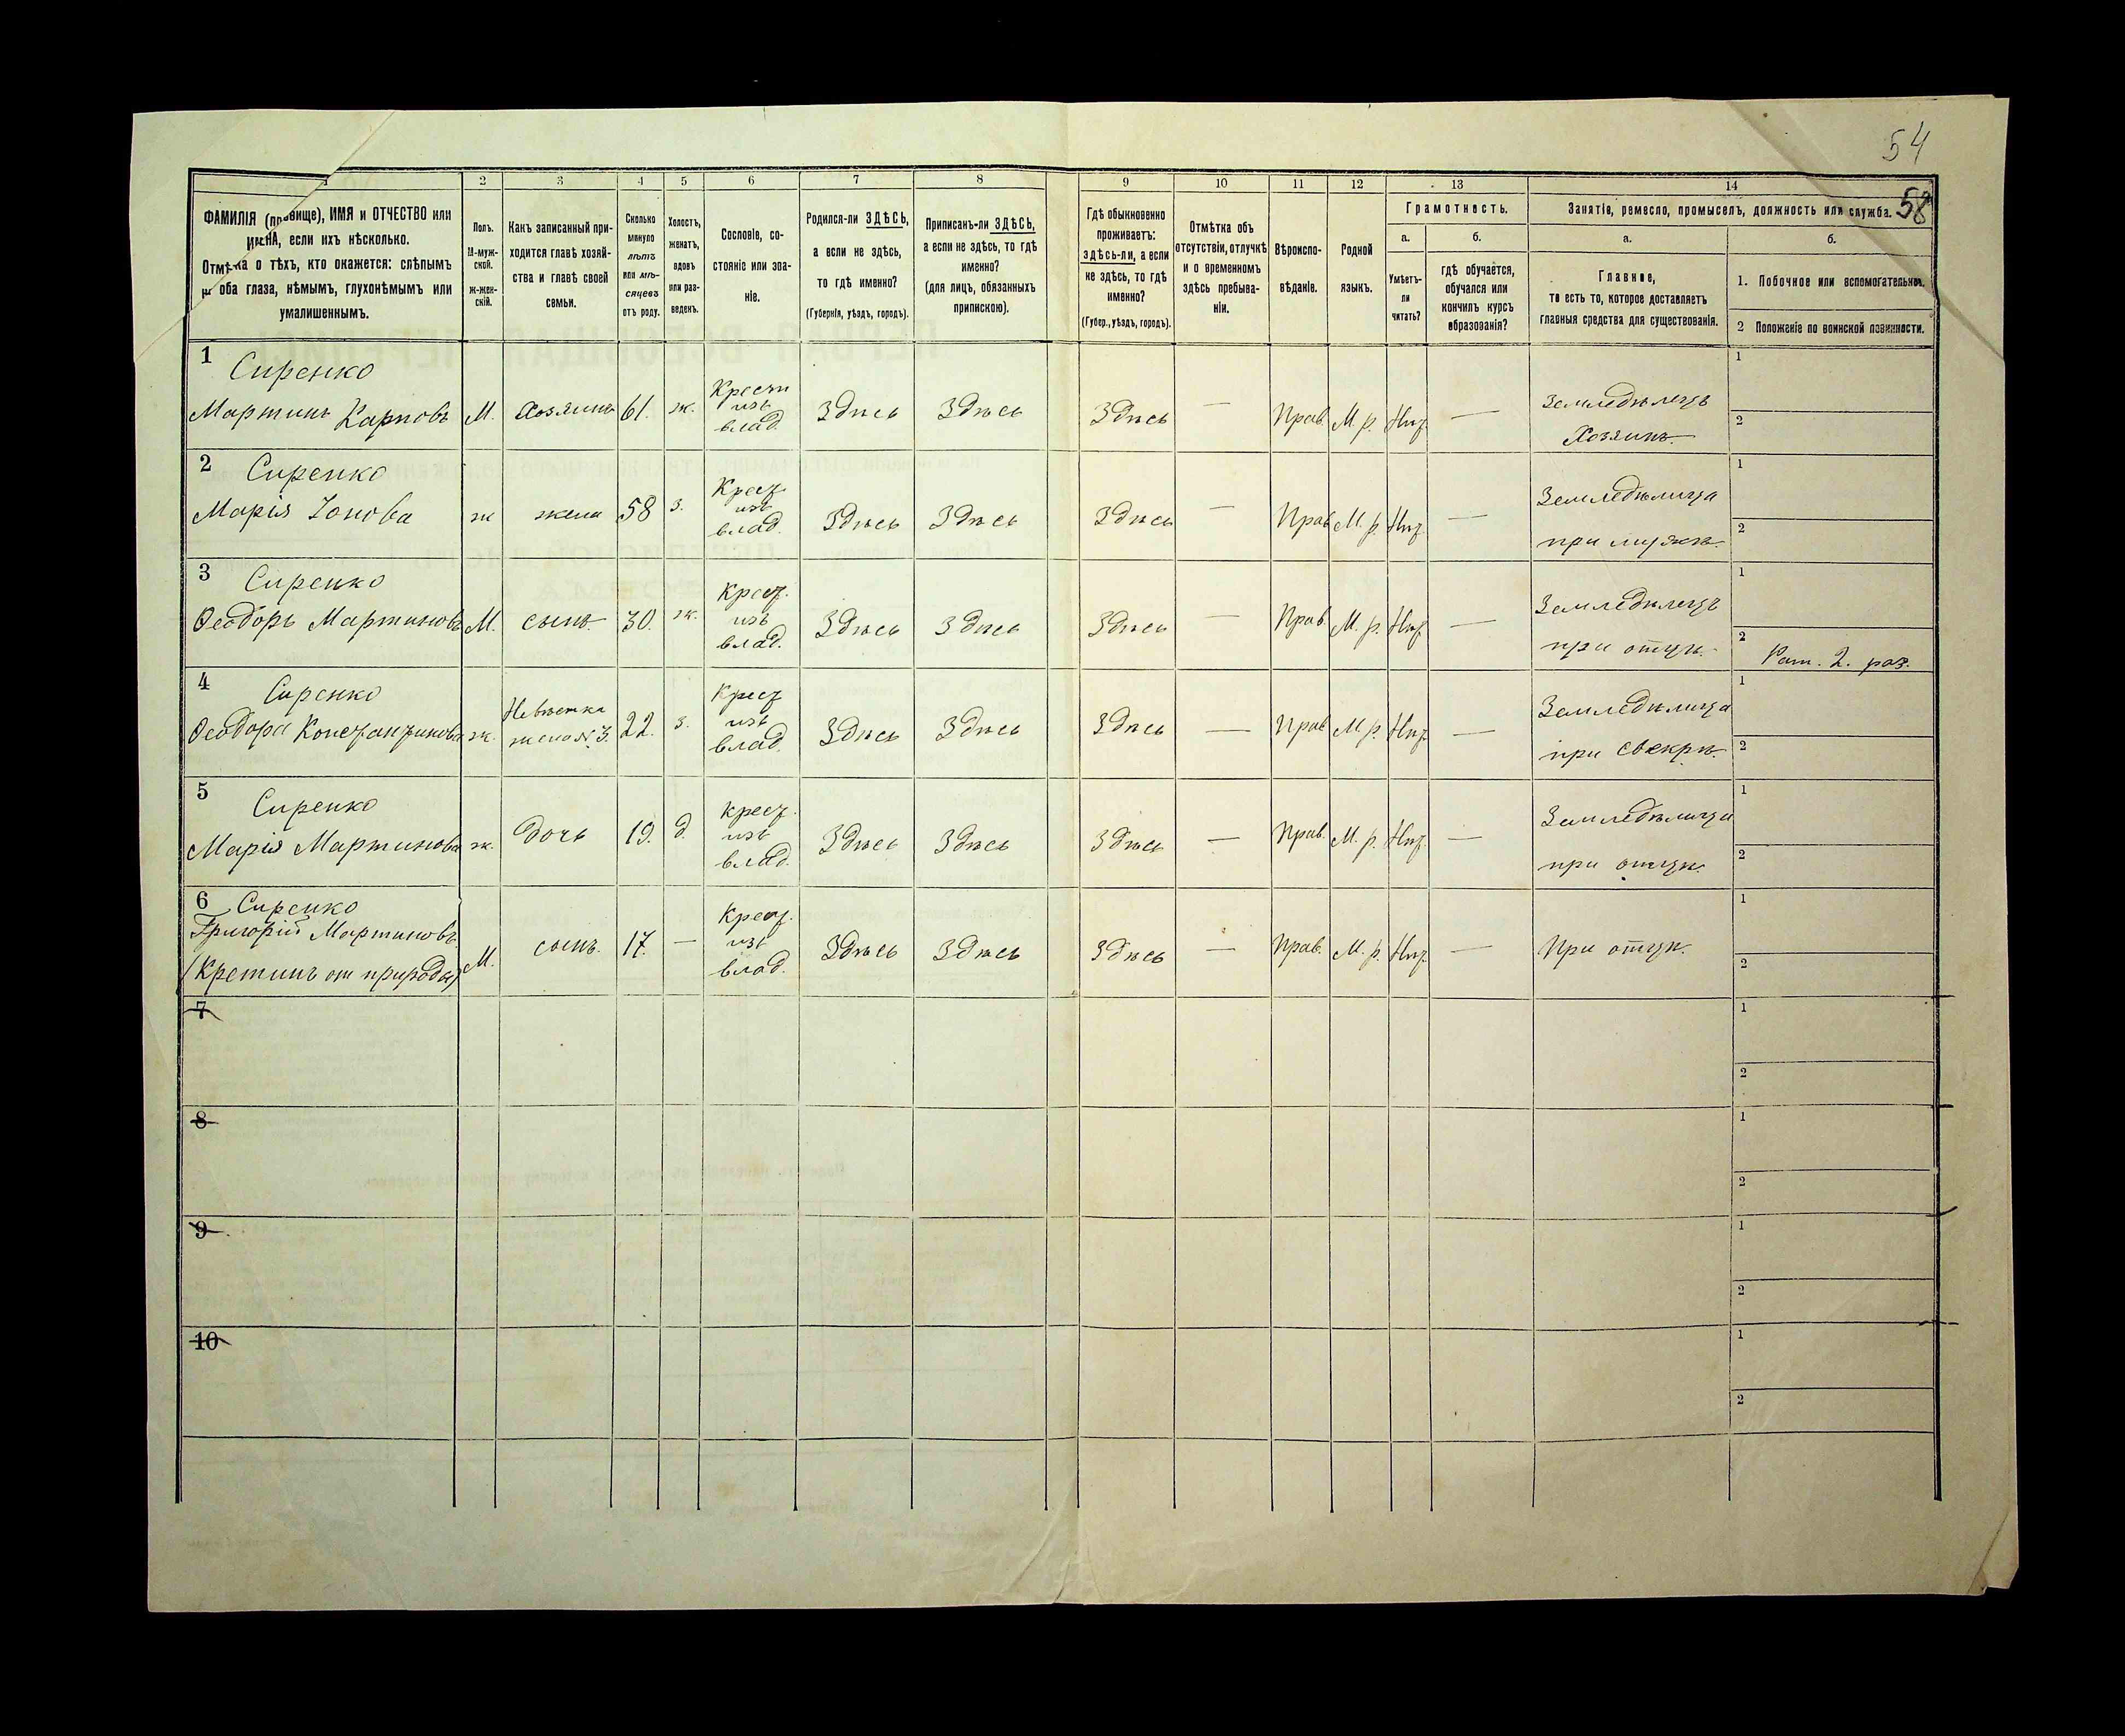 54
58
1 2 3 4 5 6 7 8 9 10 11 12 13 14
ФАМИЛІЯ (прозвище), ИМЯ и ОТЧЕСТВО или
ИМЕНА, если ихъ нѣсколько.
Отмѣтка о тѣхъ, кто окажется: слѣпымъ
на оба глаза, нѣмымъ, глухонѣмымъ или
умалишеннымъ.
Полъ.
М-муж-
ской.
ж-жен-
скій.
Какъ записанный при-
ходится главѣ хозяй-
ства и главѣ своей
семьи.
Сколько
минуло
лѣтъ
или мѣ-
сяцевъ
отъ роду.
Холостъ,
женатъ,
вдовъ
или раз-
веденъ.
Сословіе, со-
стояніе или зва-
ніе.
Родился-ли ЗДѢСЬ,
а если не здѣсь,
то гдѣ именно?
(Губернія, уѣздъ, городъ).
Приписанъ-ли ЗДѢСЬ,
а если не здѣсь, то гдѣ
именно?
(для лицъ, обязанныхъ
припискою).
Гдѣ обыкновенно
проживаетъ:
здѣсь-ли, а если
не здѣсь, то гдѣ
именно?
(Губер., уѣздъ, городъ).
Отмѣтка объ
отсутствіи, отлучкѣ
и о временномъ
здѣсь пребыва-
ніи.
Вѣроиспо-
вѣданіе.
Родной
языкъ.
Грамотность.
а.
Умѣетъ-
ли
читать?
б.
гдѣ обучается,
обучался или
кончилъ курсъ
образованія?
Занятіе, ремесло, промыселъ, должность или служба.
а.
Главное,
то есть то, которое доставляетъ
главныя средства для существованія.
б.
1. Побочное или вспомогательное.
2 Положеніе по воинской повинности.
1 Сиренко
Мартинъ Карповъ М. Хозяинъ 61. ж. Крестн изъ влад. Здѣсь Здѣсь Здѣсь — Прав. М. р. Нѣт — Земледѣлецъ
Хозяинъ.
1
2
2 Сиренко
Марія Іонова ж жена 58 з. Крест. изъ влад. Здѣсь Здѣсь Здѣсь — Прав М. р. Нѣт — Земледѣлица
при мужѣ.
1
2
3 Сиренко
Ѳеодоръ Мартиновъ М. сынъ 30. ж. Крест. изъ влад. Здѣсь Здѣсь Здѣсь — Прав М. р. Нѣт — Земледѣлецъ
при отцѣ.
1
2 Рат. 2. раз.
4 Сиренко
Ѳеодора Константинова ж. Невѣстка
жена N. 3. 22. з. Крест изъ влад. Здѣсь Здѣсь Здѣсь — Прав М. р. Нѣт — Земледѣлица
при свекрѣ.
1
2
5 Сиренко
Марія Мартинова ж. дочь 19. д. Крест. изъ влад. Здѣсь Здѣсь Здѣсь — Прав. М. р. Нѣт — Земледѣлица
при отцѣ.
1
2
6 Сиренко
Григорій Мартиновъ
(Кретинъ от природы) М. сынъ. 17. — Крест. изъ влад. Здѣсь Здѣсь Здѣсь — Прав. М. р. Нѣт — При отцѣ.
1
2
7
1
2
8
1
2
9
1
2
10
1
2